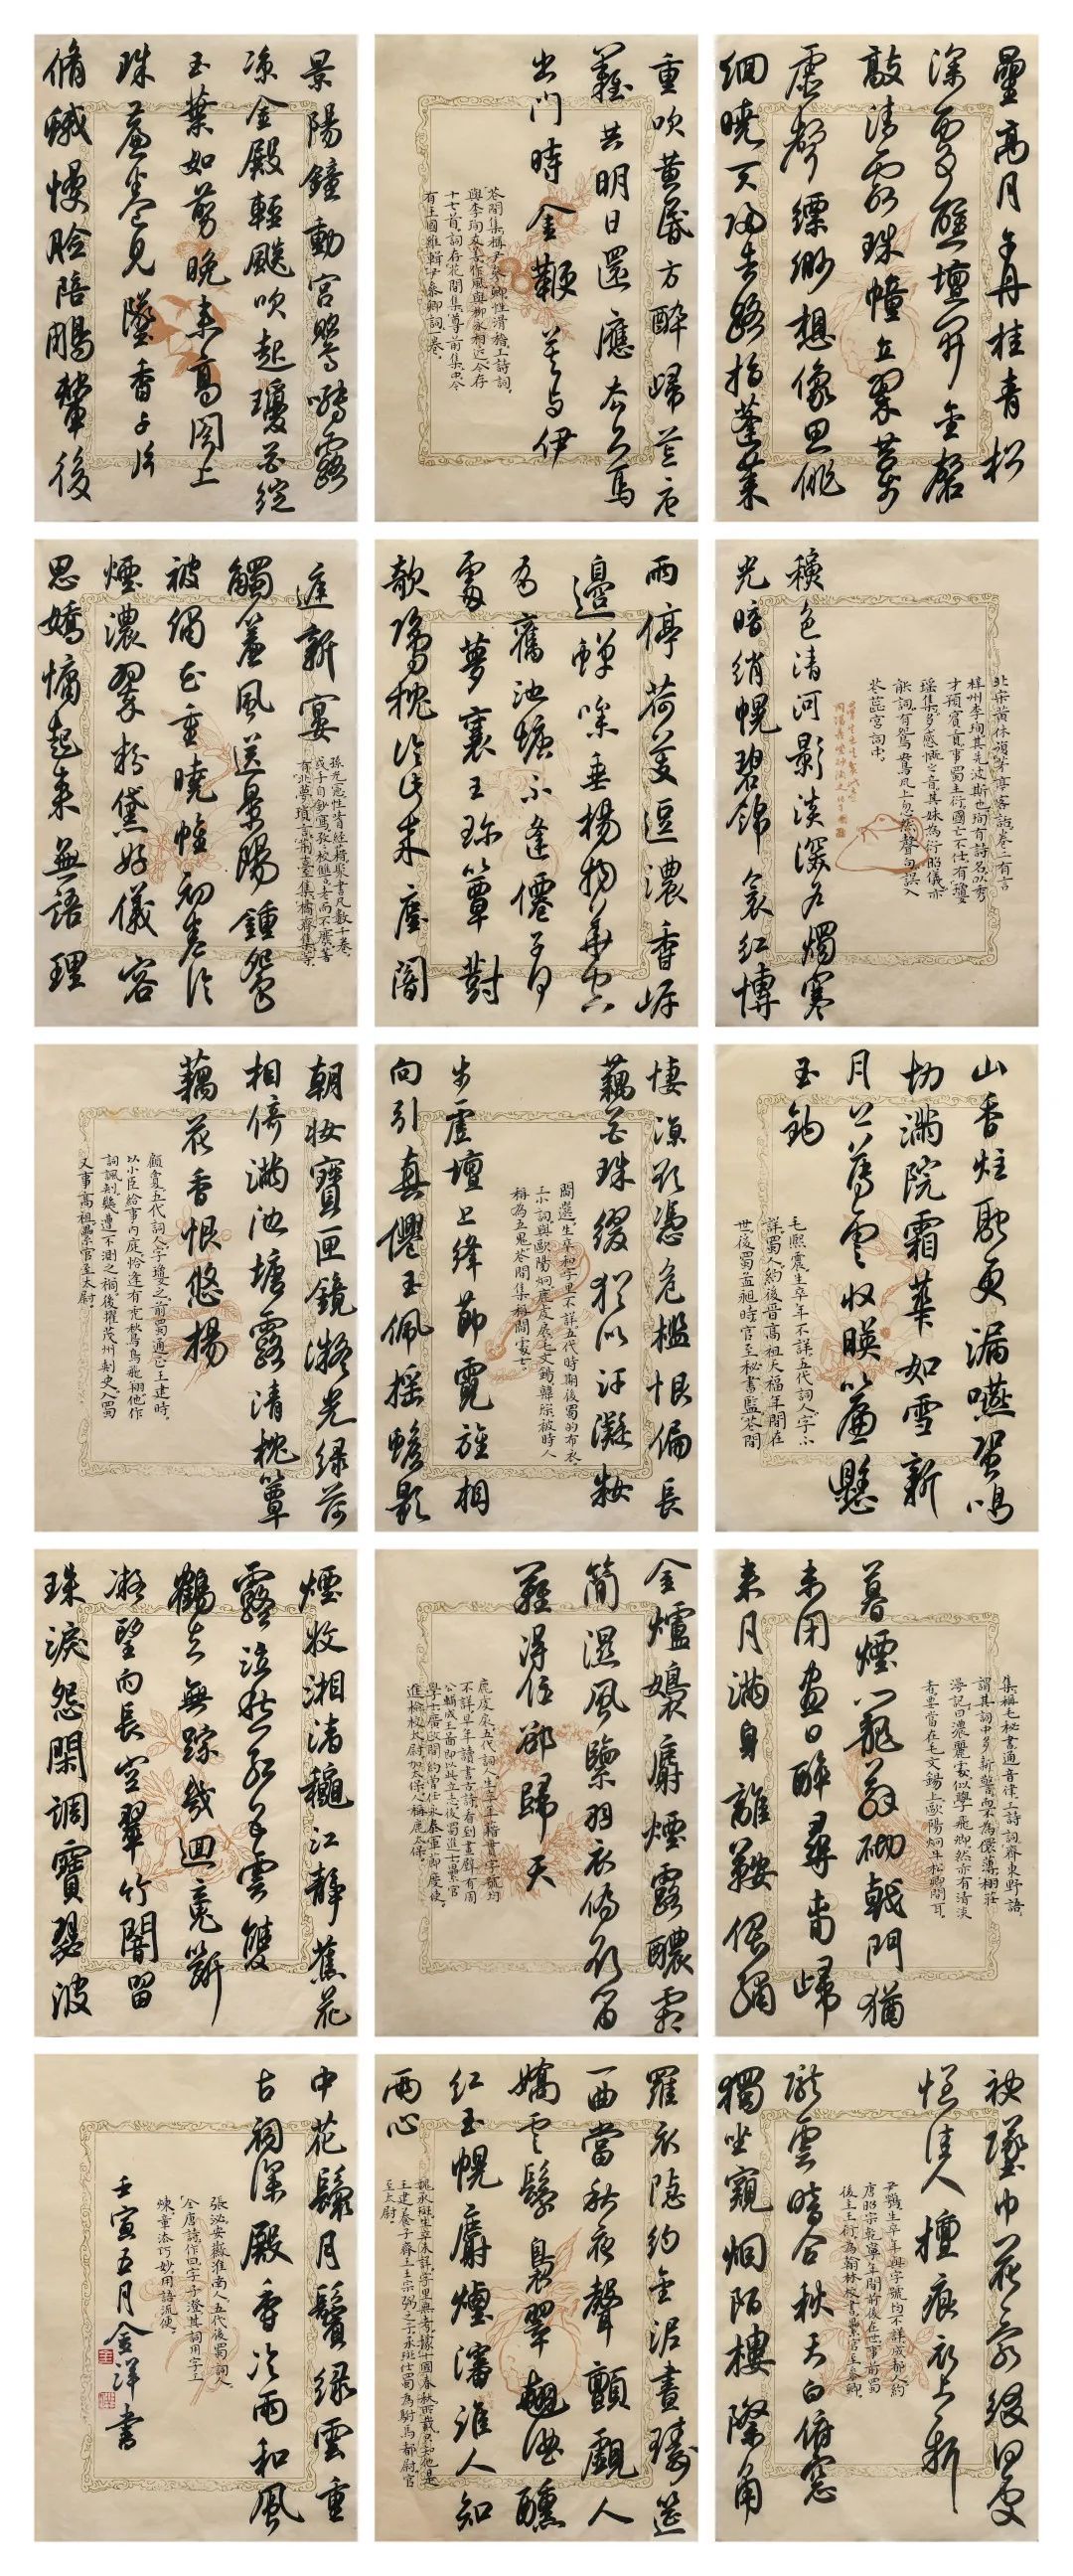 星高月午丹桂青松
深處醮壇開金磬
敲清露珠幢立翠苔步
虛聲縹緲想像思徘
徊曉天歸去路指蓬萊
重吹黃昏方醉歸荒唐
難共明日還應去上馬
出門時金鞭莫與伊
花間集稱尹參卿性滑稽工詩詞
與李珣友善作風與柳永相近今存
十七首詞存花間集尊前集中今
有王國維輯尹參卿詞一卷
景陽鐘動宮鶯囀露
涼金殿輕飇吹起瓊花綻
玉葉如剪晚來高閣上
珠簾卷見墜香千片
脩蛾慢臉陪雕輦後
北宋黃休復茅亭客話卷二有言
梓州李珣其先波斯也珣有詩名以秀
才預賓貢事蜀主衍國亡不仕有瓊
瑤集多感慨之音其妹為衍昭儀亦
能詞有鴛鴦瓦上忽然聲句誤入
花蕊宮詞中
穐色清河影淡深戶燭寒
光暗綃幌碧錦衾紅博
雨停荷芰逗濃香岸
邊蟬噪垂楊物華空
有舊池塘不逢僊子何
處夢襄王珍簟對
欹鴛枕冷此來塵闇
庭新宴
孫光憲性嗜經籍聚書凡數千卷
或手自鈔寫孜孜校讎老而不廢著
有北夢瑣言荊臺集橘齋集等
觸簾風送景陽鍾鴛
被繡花重曉帷初卷冷
煙濃翠勻粉黛好儀容
思嬌慵起來無語理
山香炷融更漏嚥蛩鳴
切滿院霜華如雪新
月上薄雲收暎簾懸
玉鈎
毛熙震生卒年不詳五代詞人字不
詳蜀人約後晉高祖天福年間在
世後蜀孟昶時官至秘書監花間
悽涼欲憑危檻恨偏長
藕花珠綴猶似汗凝妝
閻選生卒和字里不詳五代時期後蜀的布衣
工小詞與歐陽炯鹿虔扆毛文錫韓琮被時人
稱為五鬼花間集稱閻處士
步虛壇上絳節霓旌相
向引真僊玉佩搖蟾影
朝妝寶匣鏡凝光綠荷
相倚滿池塘露清枕簟
藕花香恨悠揚
顧敻五代詞人字瓊之前蜀通正王建時
以小臣給事內庭恰逢有禿秋鳥飛翔他作
詞諷刺幾遭不測之禍後擢茂州刺史入蜀
又事高祖累官至太尉
集稱毛秘書通音律工詩詞齊東野語
謂其詞中多新警而不為儇薄栩莊
漫記曰濃麗處似學飛卿然亦有清淡
者要當在毛文錫上歐陽炯牛松卿間耳
暮煙籠蘚砌戟門猶
未閉盡日醉尋春歸
來月滿身離鞍偎繡
金爐裊麝煙露濃霜
簡濕風緊羽衣偏欲留
難得住卻歸天
鹿虔扆五代詞人生卒年籍貫字號均
不詳早年讀書古詩看到畫壁有周
公輔成王圖即以此立志後蜀進士累官
學士廣政間約曾任永泰軍節度使
進檢校太尉加太保人稱鹿太保
煙收湘渚穐江靜蕉花
露泣愁紅五雲雙
鶴去無踪幾迴魂斷
凝望向長空翠竹闇留
珠淚怨閑調寶瑟波
袂墜巾花亂綴何處
惱佳人檀痕衣上新
尹鶚生卒年與字號均不詳成都人約
唐昭宗乾寧年間前後在世事前蜀
後主王衍為翰林校書累官至參卿
隴雲暗合秋天白俯窗
獨坐窺烟陌樓際角
羅衣隱約金泥畫玳筵
一曲當秋夜聲顫覷人
嬌雲鬟裊翠翹酒醺
紅玉幌麝煙濃誰人知
兩心
魏承班生卒未詳字里無考據十國春秋所載只知他是
王建養子齊王王宗弼之子承班仕蜀為駙馬都尉官
至太尉
中花鬟月鬢綠雲重
古祠深殿香冷雨和風
張泌安徽淮南人五代後蜀詞人
全唐詩作曰字子澄其詞用字工
煉章法巧妙用語流便
壬寅五月金洋書